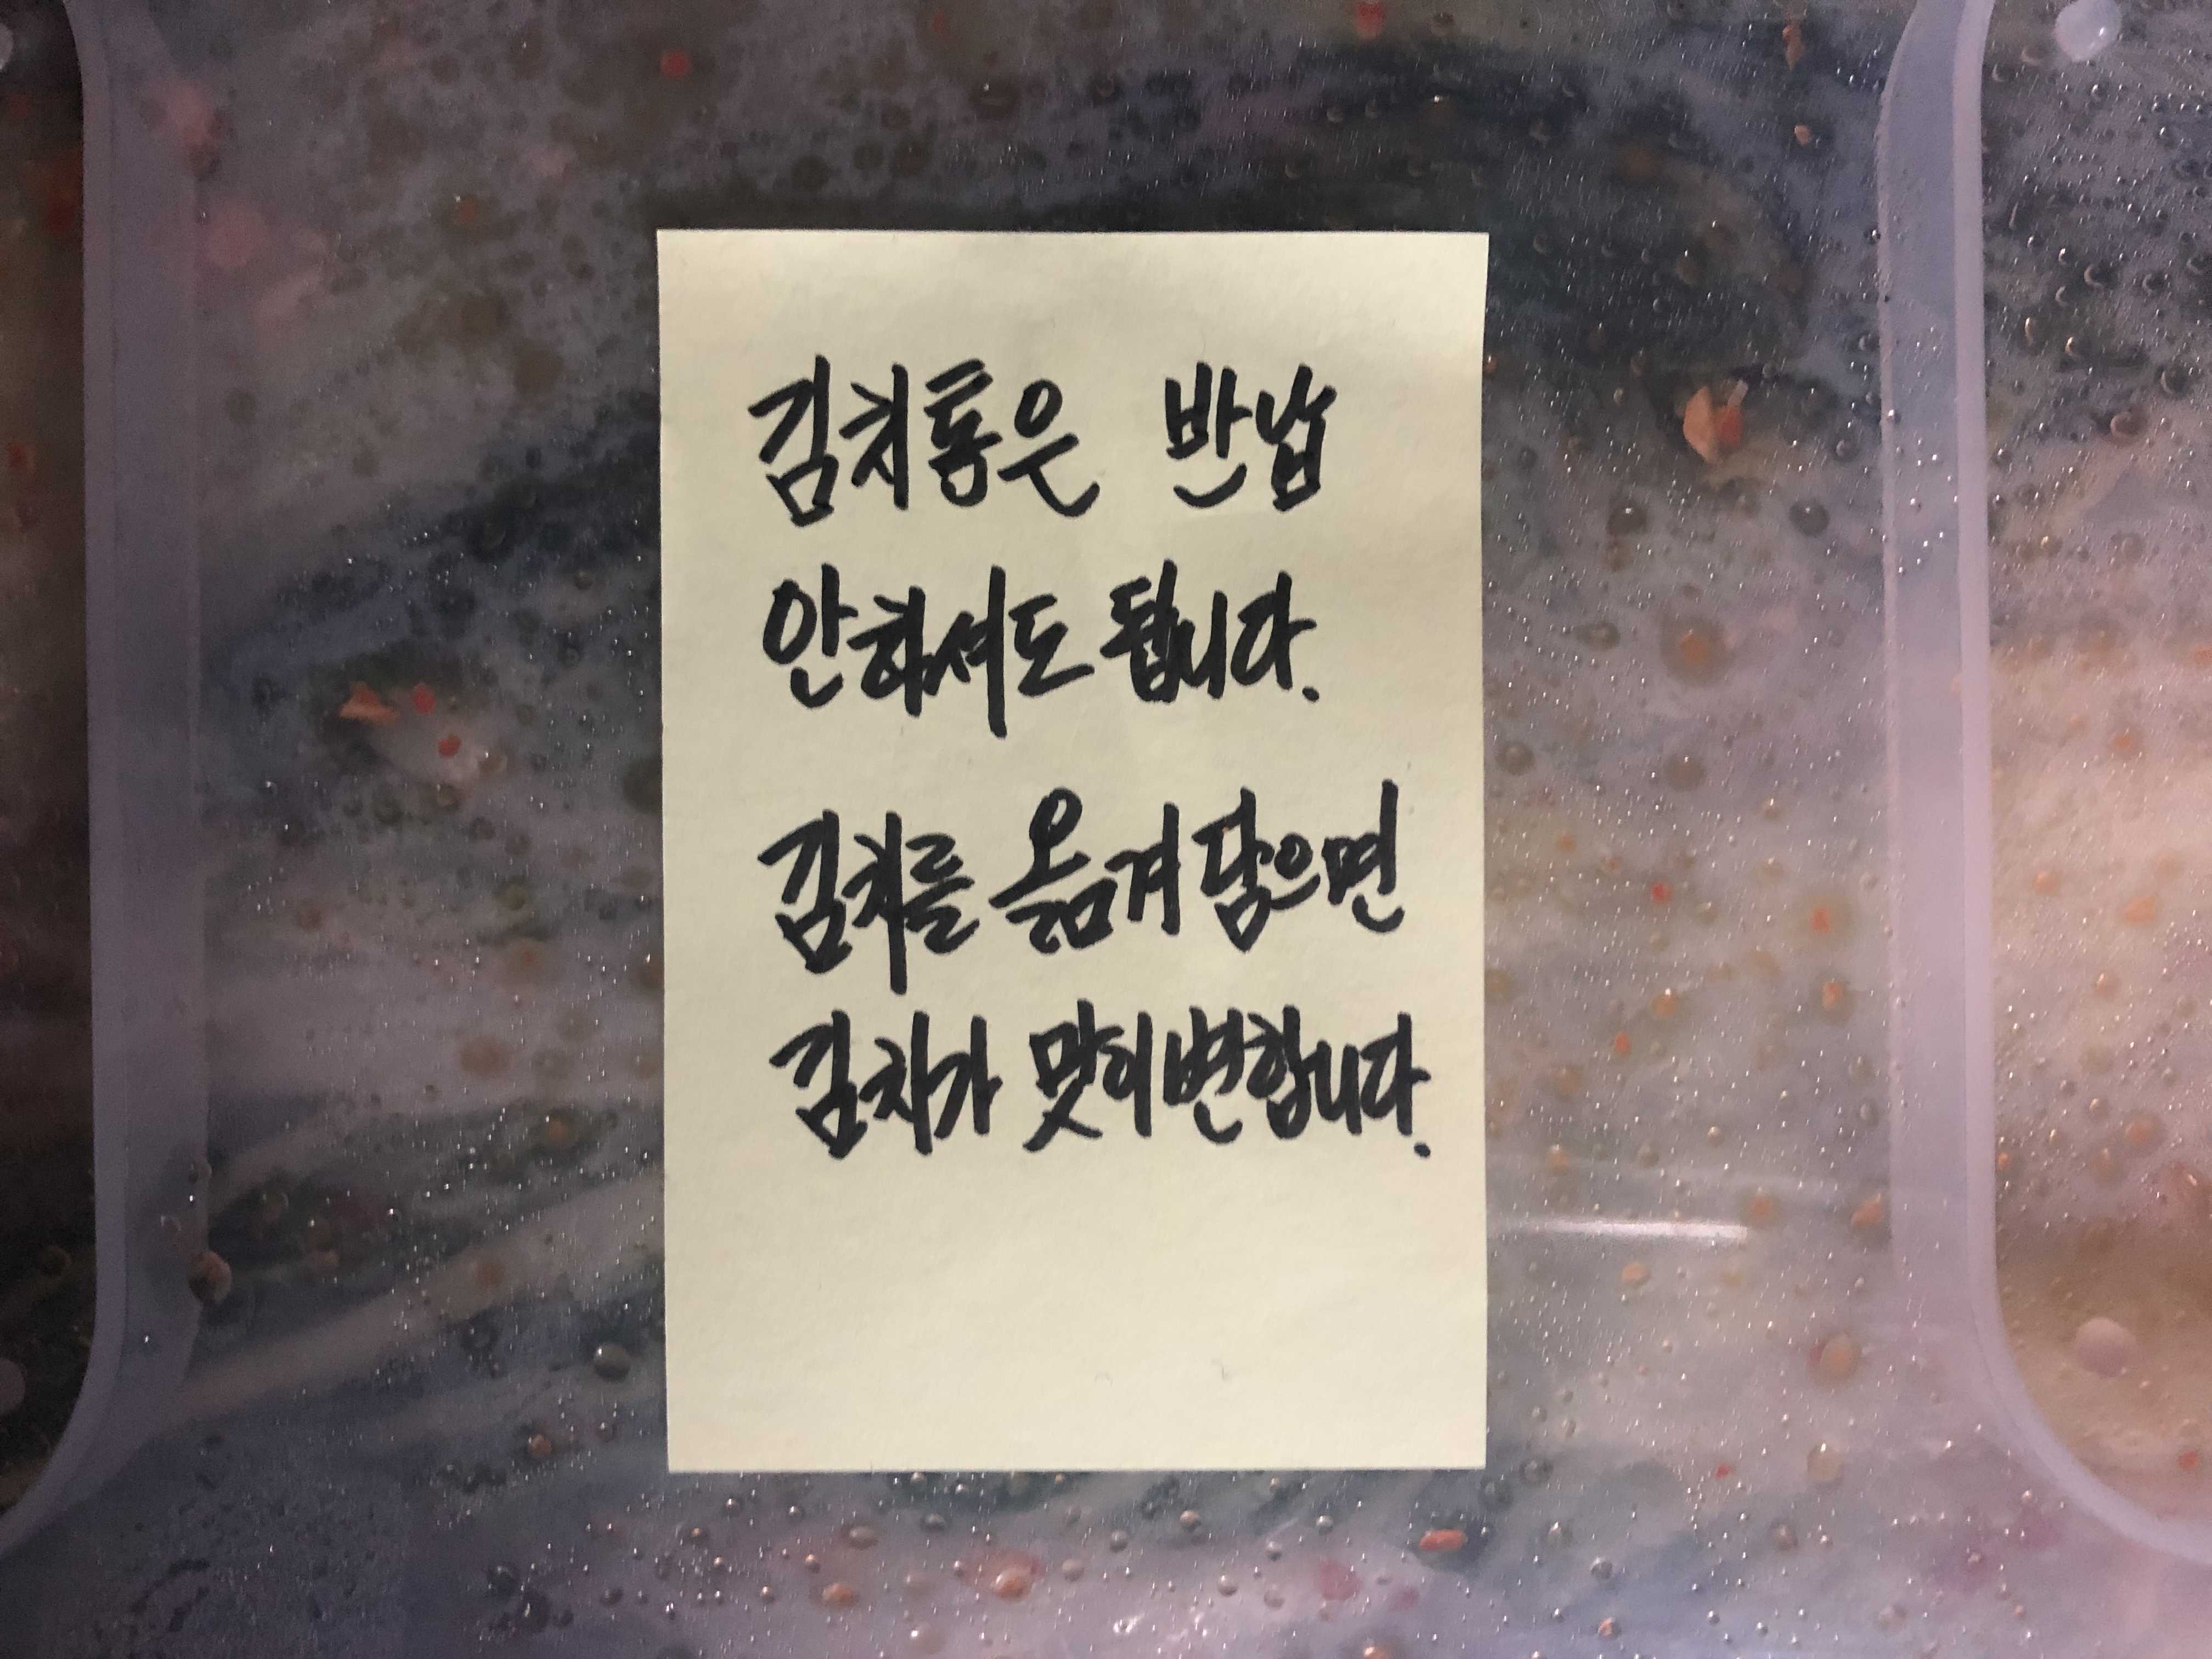 김치통은 반납
안하셔도 됩니다.
김치를 옮겨 담으면
김치가 맛이 변합니다.